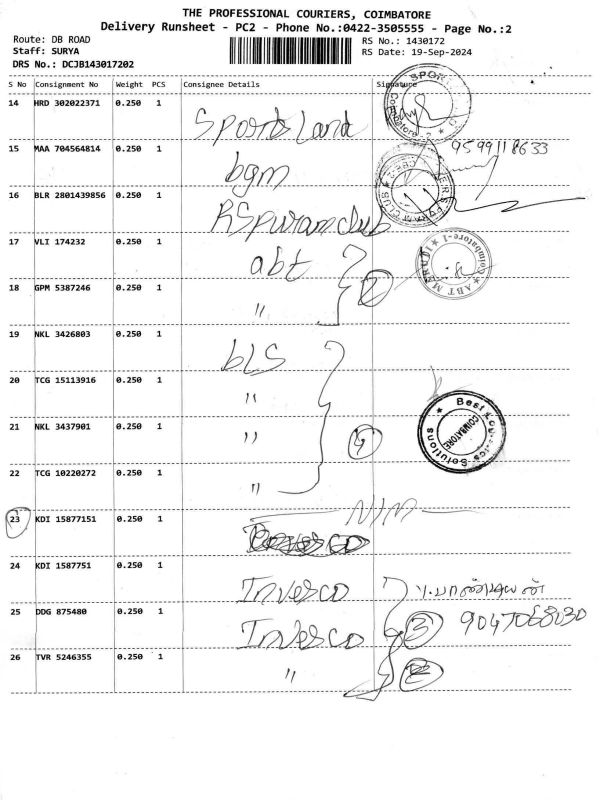 THE PROFESSIONAL COURIERS, COIMBATORE
Delivery Runsheet - PC2 - Phone No.:0422-3505555 - Page No.:2
Route: DB ROAD
RS No.: 1430172
Staff: SURYA
RS Date: 19-Sep-2024
DRS No.: DCJB143017202
S No Consignment No Weight PCS Consignee Details Signature
14 HRD 302022371 0.250 1 Sports Land
SPOR
Coimbatore-2
15 MAA 704564814 0.250 1 bgm
9599118633
16 BLR 2801439856 0.250 1 RSpuram club
17 VLI 174232 0.250 1 abt
ABT MARUTI Coimbatore-1
18 GPM 5387246 0.250 1 " 2
19 NKL 3426803 0.250 1 bLS
20 TCG 15113916 0.250 1 "
21 NKL 3437901 0.250 1 " 4
Best Logistics Solutions COIMBATORE
22 TCG 10220272 0.250 1 "
23 KDI 15877151 0.250 1
24 KDI 1587751 0.250 1 Invesco
25 DDG 875480 0.250 1 Invesco 3
26 TVR 5246355 0.250 1 "